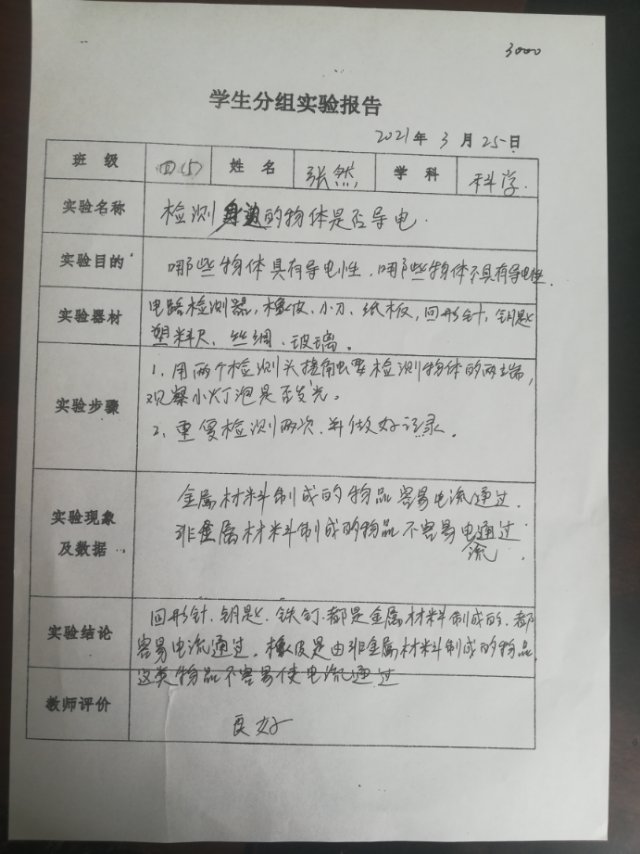 3000
学生分组实验报告
2021年 3 月 25日
班 级 四(5) 姓 名 张然 学 科 科学.
实验名称 检测身边的物体是否导电.
实验目的 哪些物体具有导电性,哪些物体不具有导电性.
实验器材 电路检测器,橡皮、小刀、纸板,回形针,钥匙
塑料尺、丝绸、玻璃。
实验步骤 1、用两个检测头接触要检测物体的两端,
观察小灯泡是否发光。
2、重复检测两次,并做好记录。
实验现象及数据 金属材料制成的物品容易电流通过.
非金属材料制成的物品不容易电流通过
实验结论 回形针、钥匙、铁钉、都是金属材料制成的,都
容易电流通过。橡皮是由非金属材料制成的物品,
这类物品不容易使电流通过
教师评价 良好